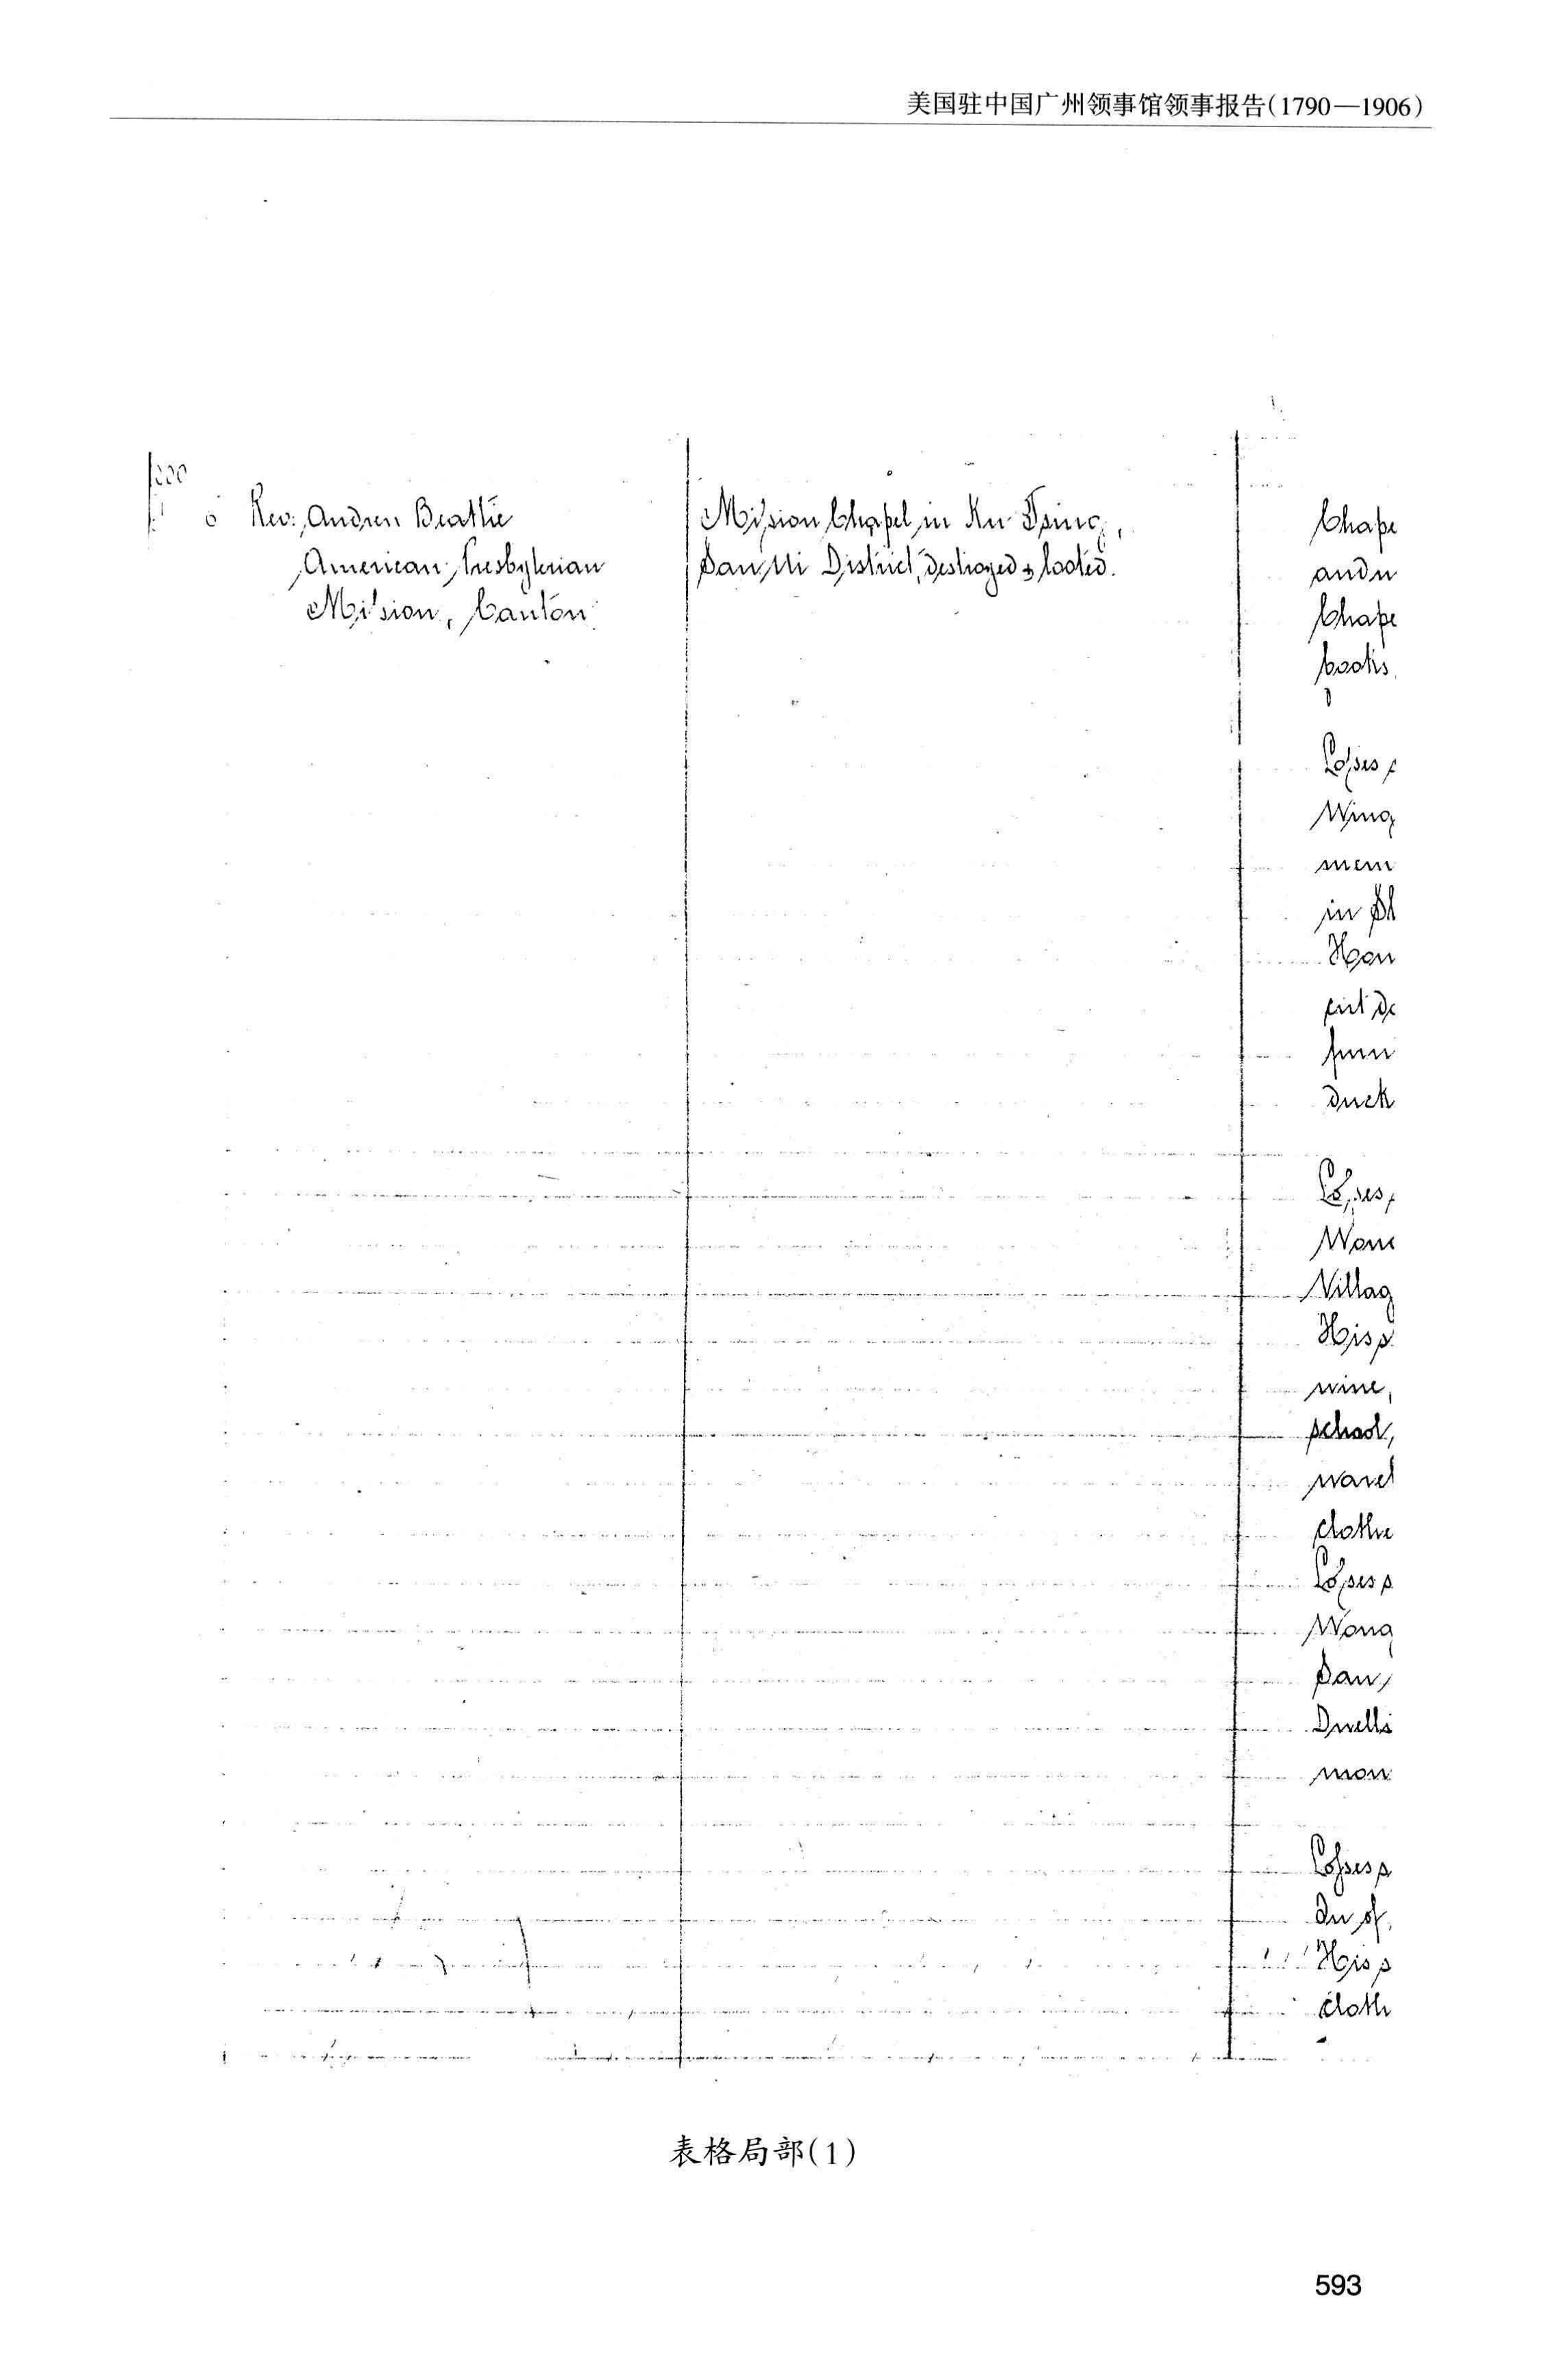 美国驻中国广州领事馆领事报告(1790—1906)
6 Rev: Andrew Beattie
American Presbyterian
Mission, Canton
Mission Chapel in Ku Tsing,
San Ui District, destroyed & looted.
Chape
and
Chape
books
Losses
Wing
mem
in Sh
Hou
furn
duck
Losses
Wong
Villag
His p
wine,
school,
clothe
Losses p
Wong
San
Dwelli
mon
Losses p
His p
cloth
表格局部(1)
593